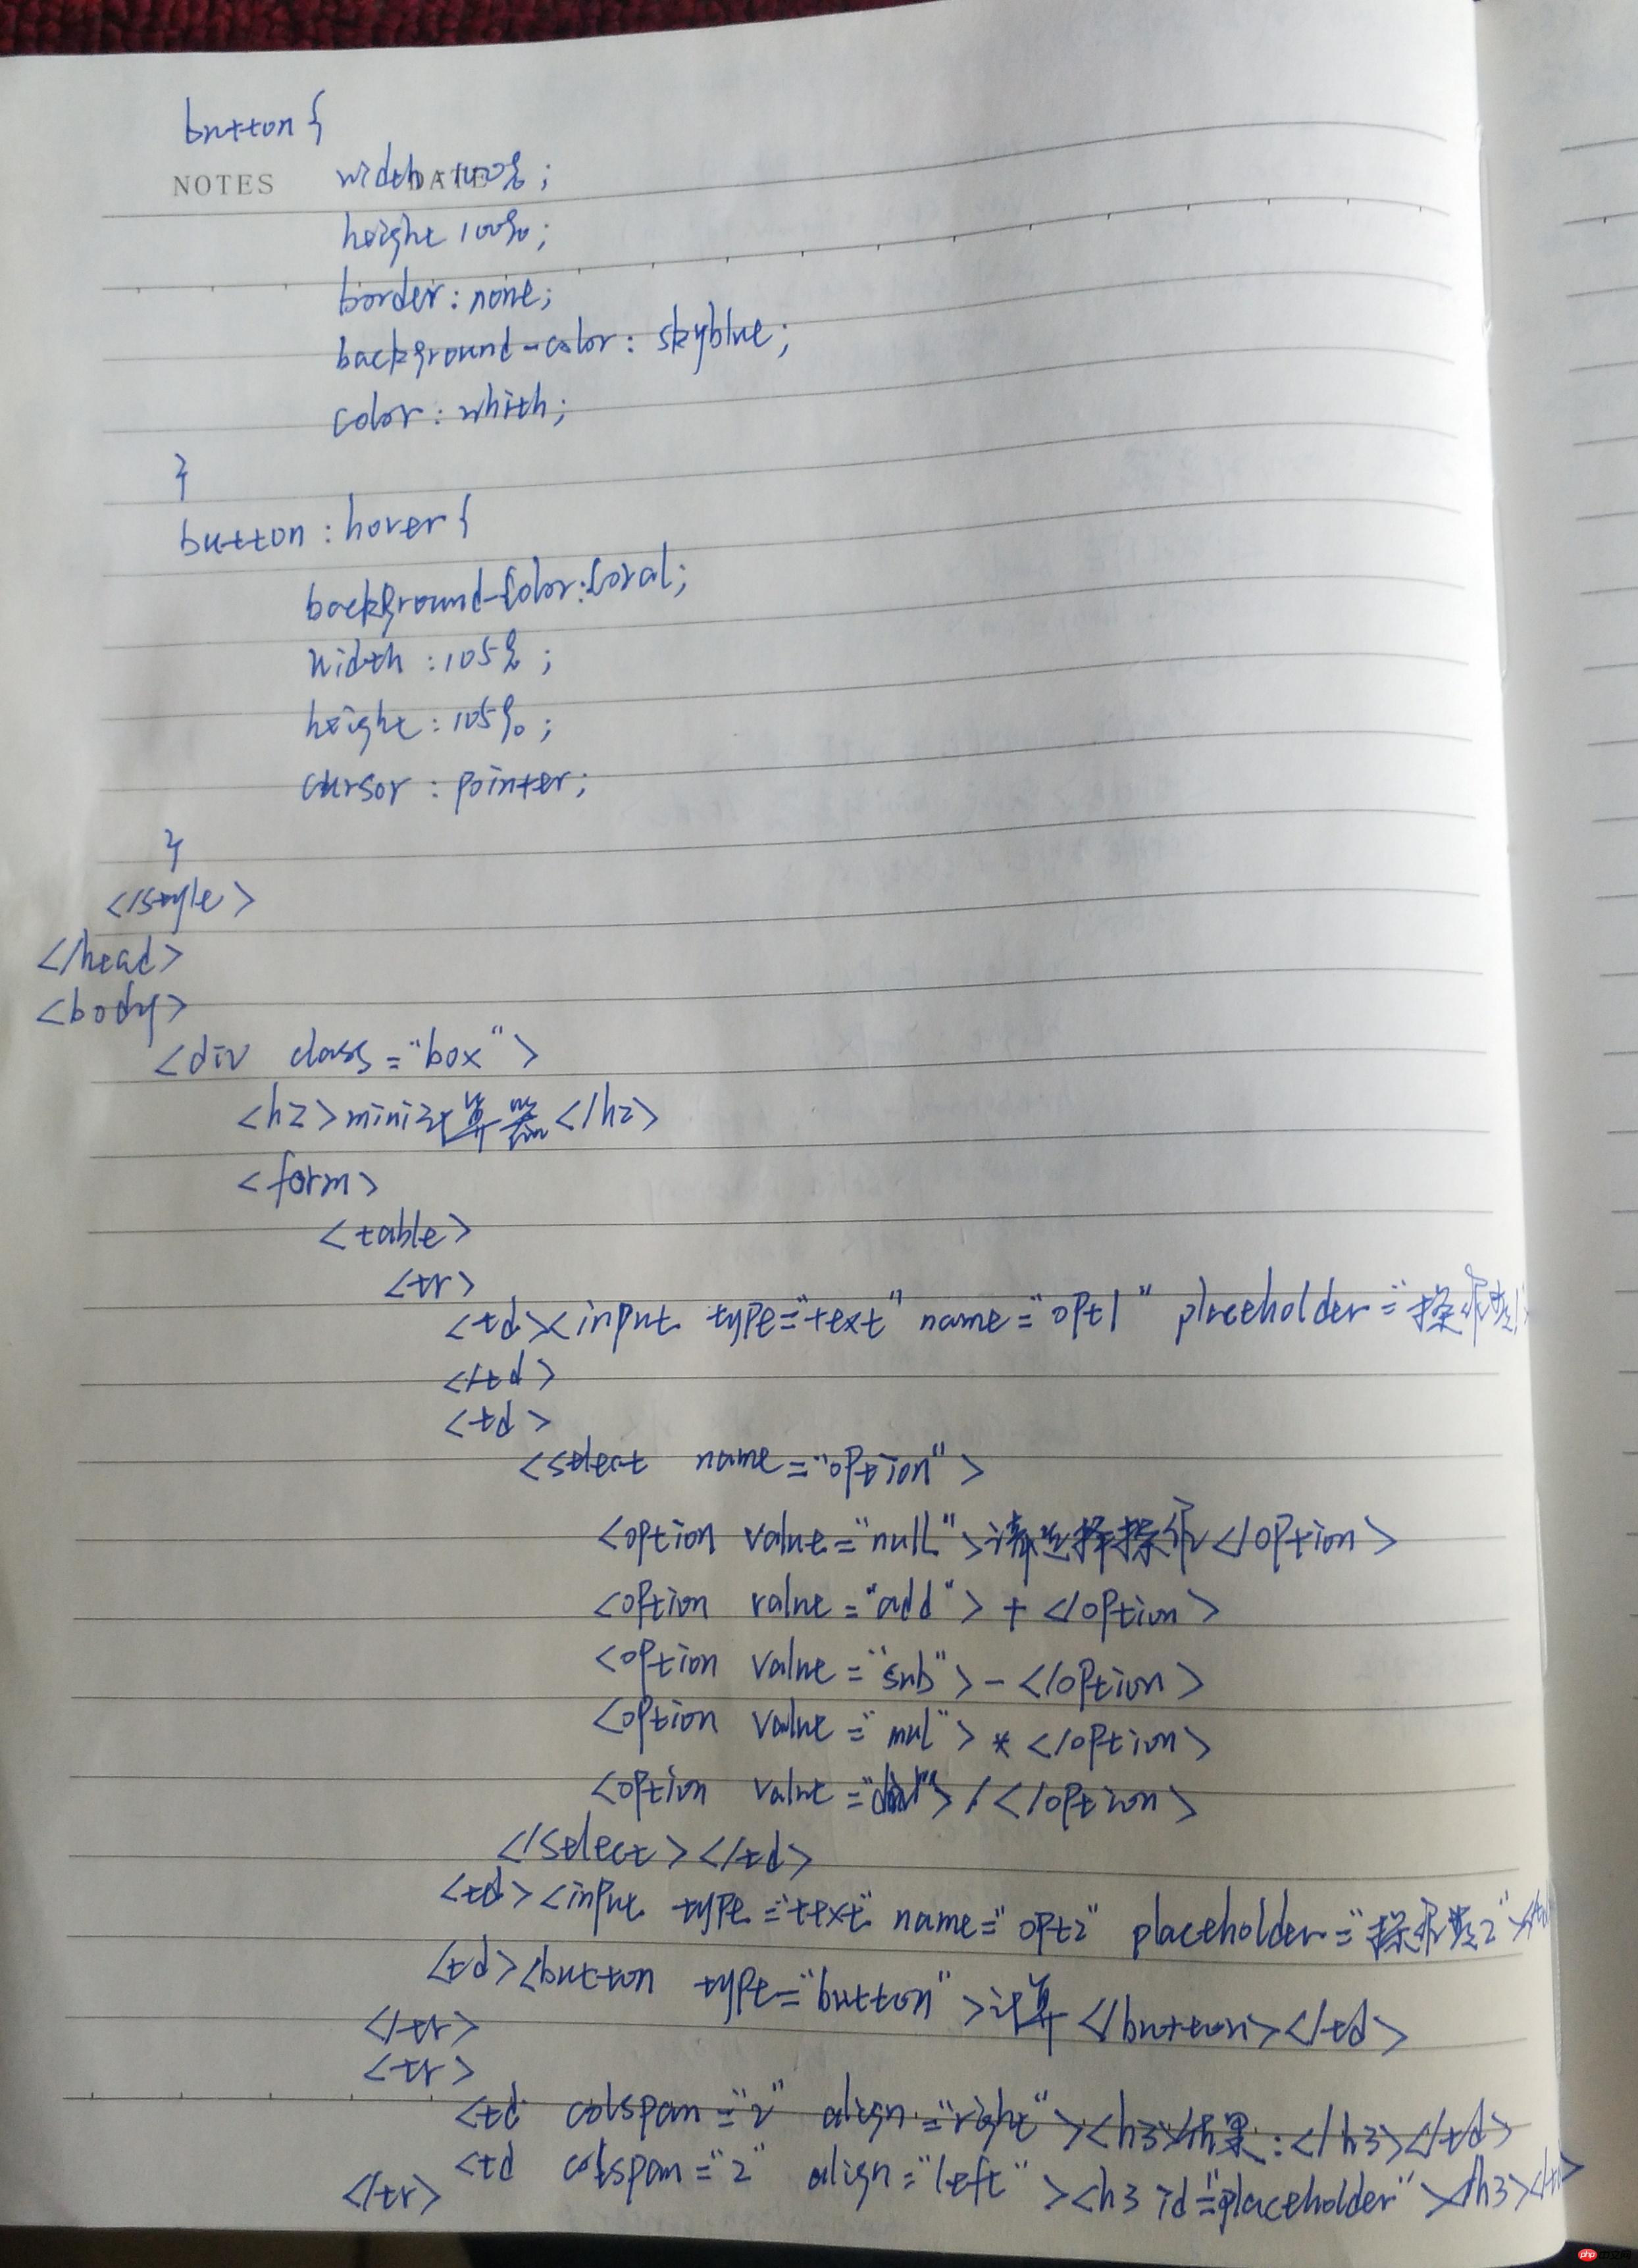 button {
NOTES DATE
width 100% ;
height 100% ;
border : none;
background-color : skyblue;
color : whith;
}
button : hover {
background-color:coral;
width : 105% ;
height : 105% ;
cursor : pointer;
}
</style>
</head>
<body>
<div class="box">
<h2>mini计算器</h2>
<form>
<table>
<tr>
<td><input type="text" name="opt1" placeholder="操作数1"
</td>
<td>
<select name="option">
<option value="null">请选择操作</option>
<option value="add"> + </option>
<option value="sub"> - </option>
<option value="mul"> * </option>
<option value= > / </option>
</select></td>
<td><input type="text" name="opt2" placeholder="操作数2"></td
<td><button type="button">计算</button></td>
</tr>
<tr>
<td colspan="2" align="right"><h3>结果:</h3></td>
<td colspan="2" align="left"><h3 id="placeholder"></h3></td>
</tr>
php 中文网